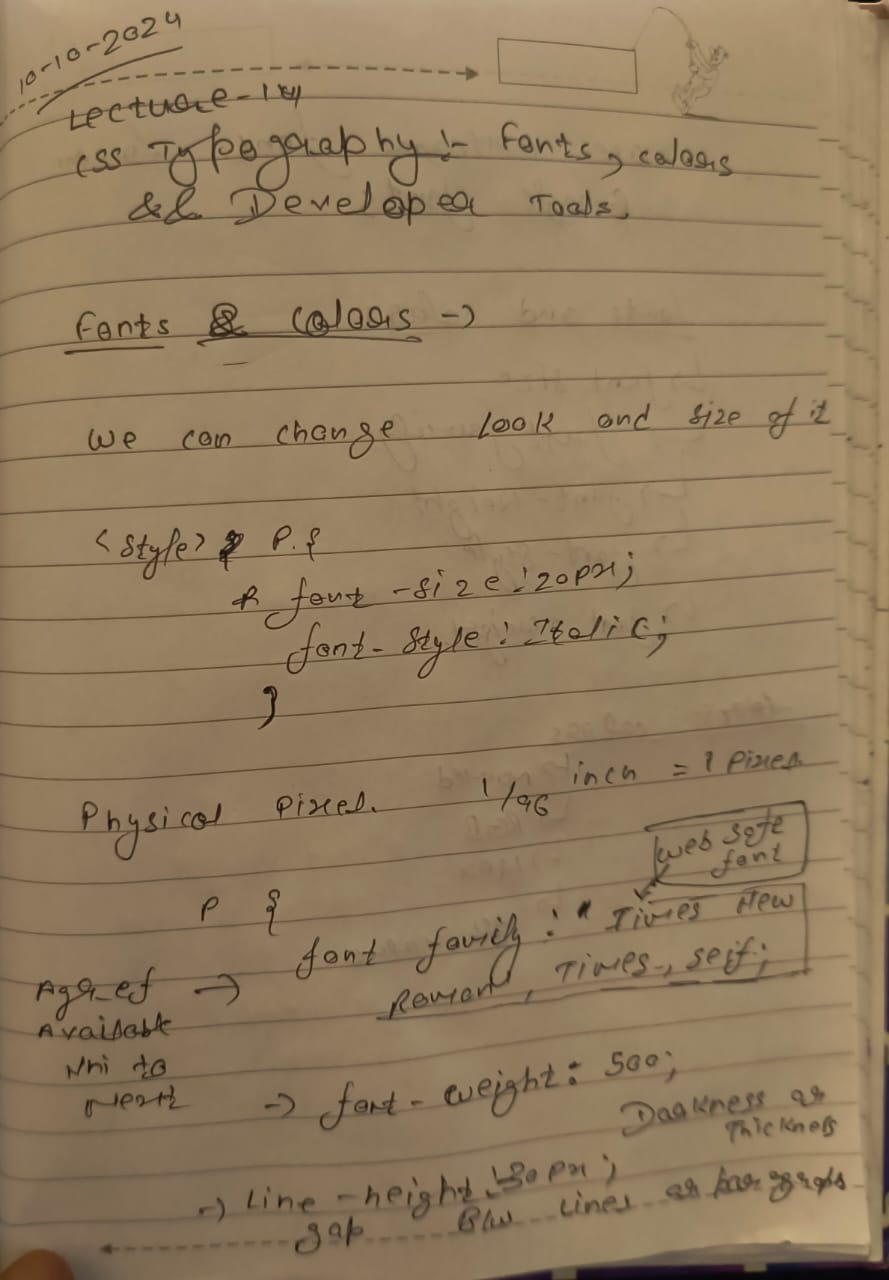 10-10-2024
Lecture-14
CSS Typography :- Fonts, colors
&& Developer Tools.
Fonts & Colors ->
We can change look and size of it
<style> P.{
font-size: 20px;
font-style: Italic;
}
Physical Pixel. 1/96 inch = 1 Pixel
Web safe
font
P {
font family: " Times New
Roman, Times, seif;
Agr ef ->
Available
Nhi to
Next
-> font-weight: 500;
Darkness or
Thickness
-> Line-height: 30px;
gap B/w Lines or paragraphs